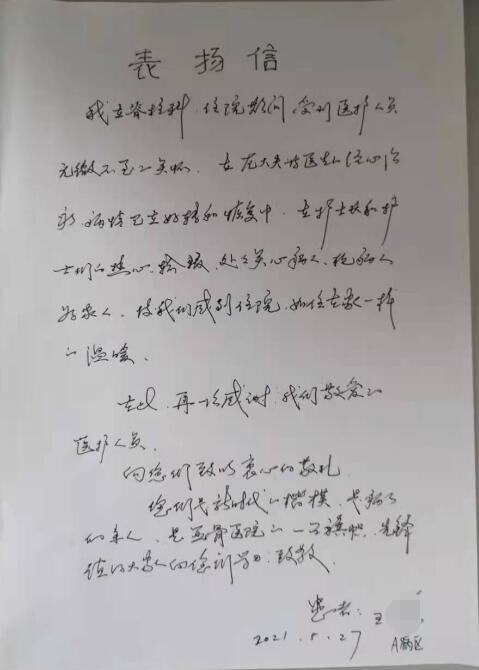 表扬信
我在脊柱科,住院期间,受到医护人员
无微不至的关怀。在龙大夫等医生的精心治
疗,病情已在好转和恢复中。在护士长和护
士们的热心、处处关心病人、把病人
为亲人,使我们感到住院,如住在家一样
的温暖。
在此,再一次感谢:我们敬爱的
医护人员。
向您们致以衷心的敬礼
您们是新时代的楷模,是病人
的亲人,是骨医院的一面旗帜,先锋
值的大家向您们学习,致敬
患者:王
2021.5.27
A病区